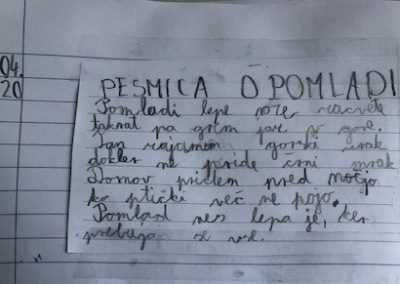 04.
20
PESMICA O POMLADI
Pomladi lepe rože
takrat pa grem jaz v gore.
gorski zrak
dokler ne pride črni mrak
Domov pridem pred nočjo
ko ptički več ne pojo.
Pomlad res lepa je, ker
prebuja se vse.